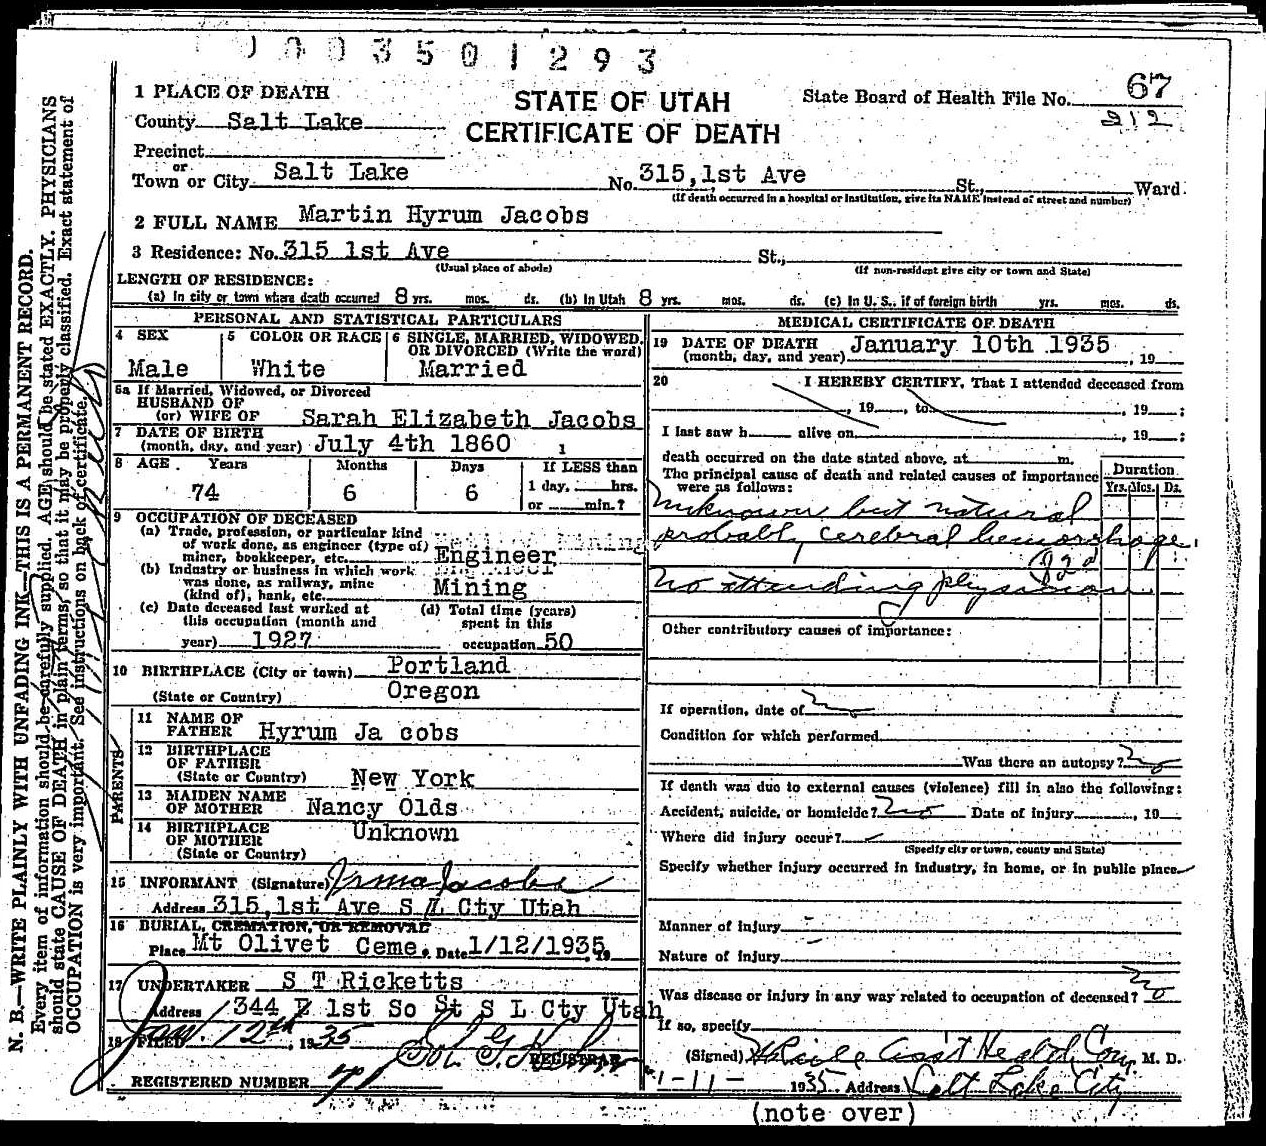 0003501293
1 PLACE OF DEATH
STATE OF UTAH
CERTIFICATE OF DEATH
State Board of Health File No. 67
212
County Salt Lake
Precinct
or
Town or City Salt Lake No. 315,1st Ave St., Ward
(If death occurred in a hospital or institution, give its NAME instead of street and number)
2 FULL NAME Martin Hyrum Jacobs
3 Residence: No. 315 1st Ave St.,
(Usual place of abode) (If non-resident give city or town and State)
LENGTH OF RESIDENCE:
(a) In city or town where death occurred 8 yrs. mos. ds. (b) In Utah 8 yrs. mos. ds. (c) In U. S., if of foreign birth yrs. mos. ds.
PERSONAL AND STATISTICAL PARTICULARS
4 SEX 5 COLOR OR RACE 6 SINGLE, MARRIED, WIDOWED, OR DIVORCED (Write the word)
Male White Married
5a If Married, Widowed, or Divorced
HUSBAND OF
(or) WIFE OF Sarah Elizabeth Jacobs
7 DATE OF BIRTH
(month, day, and year) July 4th 1860
8 AGE Years Months Days If LESS than
74 6 6 1 day, hrs.
or min.?
9 OCCUPATION OF DECEASED
(a) Trade, profession, or particular kind
of work done, as engineer (type of)
miner, bookkeeper, etc. Engineer
(b) Industry or business in which work
was done, as railway, mine
(kind of), bank, etc. Mining
(c) Date deceased last worked at
this occupation (month and
year) 1927
(d) Total time (years)
spent in this
occupation 50
10 BIRTHPLACE (City or town) Portland
(State or Country) Oregon
PARENTS
11 NAME OF
FATHER Hyrum Ja cobs
12 BIRTHPLACE
OF FATHER
(State or Country) New York
13 MAIDEN NAME
OF MOTHER Nancy Olds
14 BIRTHPLACE Unknown
OF MOTHER
(State or Country)
15 INFORMANT (Signature) Irma Jacobs
Address 315,1st Ave S L Cty Utah
16 BURIAL, CREMATION, OR REMOVAL
Place Mt Olivet Ceme. Date 1/12/1935, 19
17 UNDERTAKER S T Ricketts
Address 344 E 1st So St S L Cty Utah
18 FILED Jan. 12th, 1935
REGISTRAR
REGISTERED NUMBER
MEDICAL CERTIFICATE OF DEATH
19 DATE OF DEATH
(month, day, and year) January 10th 1935, 19
20 I HEREBY CERTIFY, That I attended deceased from
, 19 , to , 19 ;
I last saw h alive on , 19 ;
death occurred on the date stated above, at m.
The principal cause of death and related causes of importance
were as follows:
Duration
Yrs. Mos. Ds.
unknown but natural
probably cerebral hemorrhage.
82d
No attending physician
Other contributory causes of importance:
If operation, date of no
Condition for which performed
Was there an autopsy? no
If death was due to external causes (violence) fill in also the following:
Accident, suicide, or homicide? no Date of injury , 19
Where did injury occur?
(Specify city or town, county and State)
Specify whether injury occurred in industry, in home, or in public place
Manner of injury
Nature of injury
Was disease or injury in any way related to occupation of deceased? no
If so, specify
(Signed) Ass't Health Com M. D.
1-11- 1935 Address Salt Lake City
(note over)
N. B.—WRITE PLAINLY WITH UNFADING INK—THIS IS A PERMANENT RECORD.
Every item of information should be carefully supplied. AGE should be stated EXACTLY. PHYSICIANS
should state CAUSE OF DEATH in plain terms, so that it may be properly classified. Exact statement of
OCCUPATION is very important. See instructions on back of certificate.